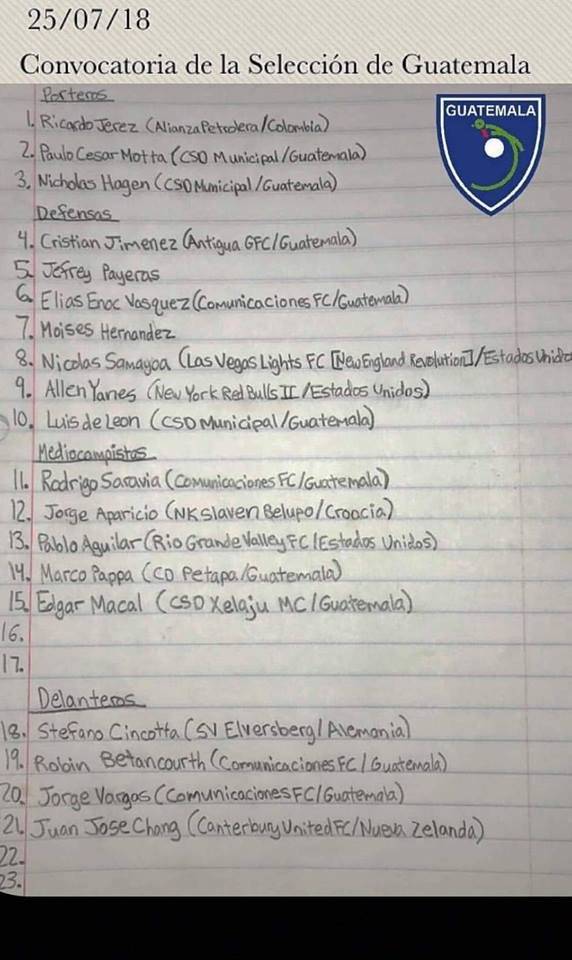 25/07/18
Convocatoria de la Selección de Guatemala
GUATEMALA
Porteros
1. Ricardo Jerez (Alianza Petrolera/Colombia)
2. Paulo Cesar Motta (CSD Municipal/Guatemala)
3. Nicholas Hagen (CSD Municipal/Guatemala)
Defensas
4. Cristian Jimenez (Antigua GFC/Guatemala)
5. Jefrey Payeras
6. Elias Enoc Vasquez (Comunicaciones FC/Guatemala)
7. Moises Hernandez
8. Nicolas Samayoa (Las Vegas Lights FC [New England Revolution]/Estados Unidos
9. Allen Yanes (New York Red Bulls II/Estados Unidos)
10. Luis de Leon (CSD Municipal/Guatemala)
Mediocampistas
11. Rodrigo Saravia (Comunicaciones FC/Guatemala)
12. Jorge Aparicio (NK Slaven Belupo/Croacia)
13. Pablo Aguilar (Rio Grande Valley FC/Estados Unidos)
14. Marco Pappa (CD Petapa/Guatemala)
15. Edgar Macal (CSD Xelaju MC/Guatemala)
16.
17.
Delanteros
18. Stefano Cincotta (SV Elversberg/Alemania)
19. Robin Betancourth (Comunicaciones FC/Guatemala)
20. Jorge Vargas (Comunicaciones FC/Guatemala)
21. Juan Jose Chang (Canterbury United FC/Nueva Zelanda)
22.
23.